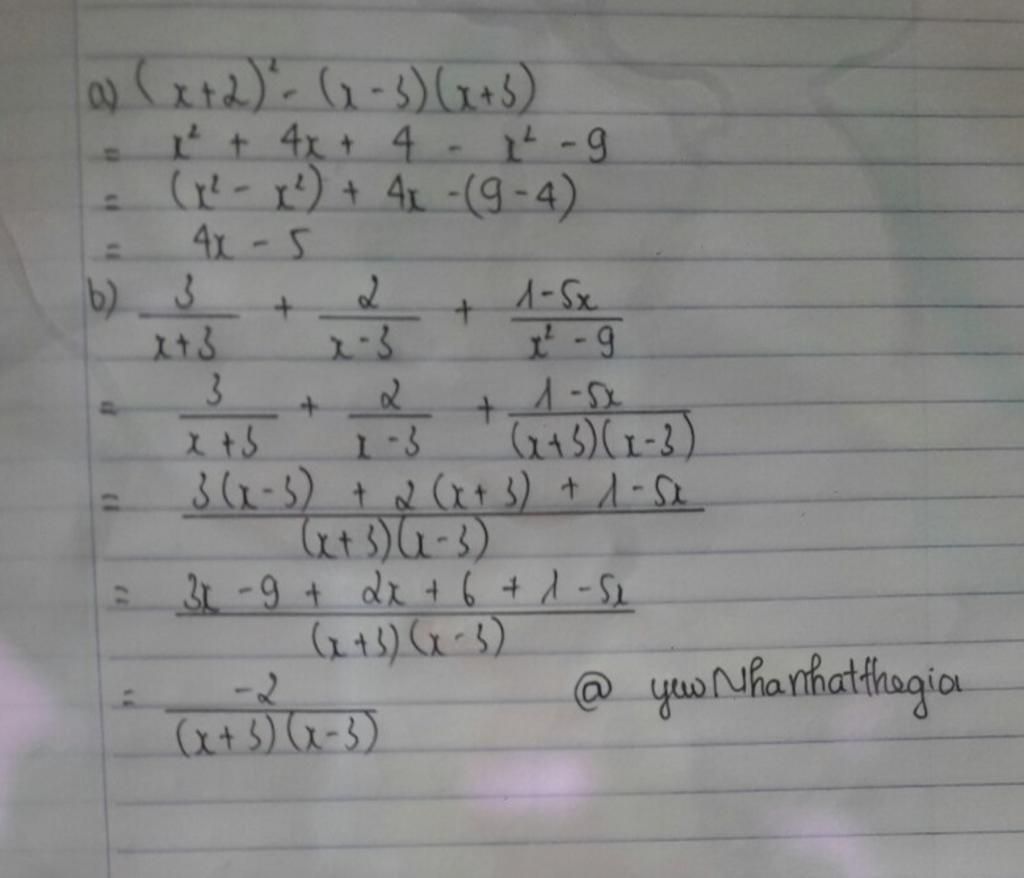 a) (x+2)² - (x-3)(x+3)
= x² + 4x + 4 - x² - 9
= (x² - x²) + 4x -(9-4)
= 4x - 5
b) 3/(x+3) + 2/(x-3) + (1-5x)/(x²-9)
= 3/(x+3) + 2/(x-3) + (1-5x)/((x+3)(x-3))
= (3(x-3) + 2(x+3) + 1-5x)/((x+3)(x-3))
= (3x-9 + 2x+6 + 1-5x)/((x+3)(x-3))
= -2/((x+3)(x-3)) @ yewNhanhatthegia